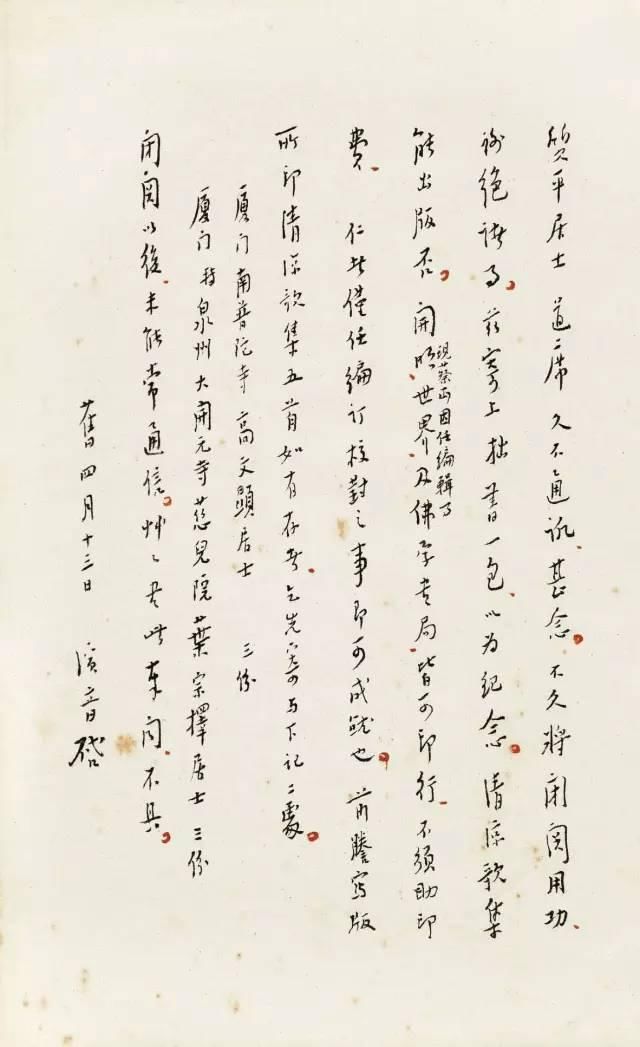 质平居士道席 久不通讯、甚念。不久将闭関用功、
谢绝诸事。兹寄上拙书一包、以为纪念。清凉歌集
能出版否。開明、世界、及佛学书局、皆可印行、不须助印
现蔡丏因任编輯事
费、 仁者僅任编订校對之事即可成就也。前謄写版
所印清凉歌集五首如有存者、乞先寄与下记二處。
厦门南普陀寺高文顯居士 三份
厦门转泉州大開元寺慈兒院葉宗擇居士三份
闭関以後、未能常通信。艸々書此奉闻、不具。
舊四月十三日 演音啓